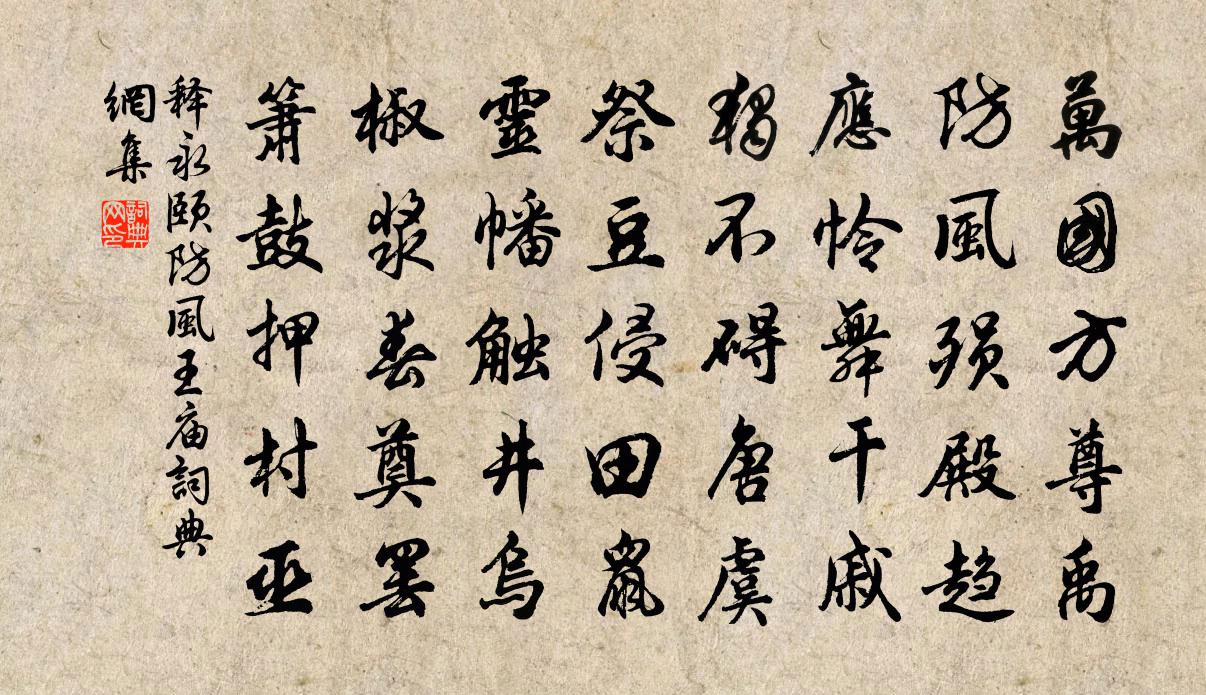 萬國方尊禹
防風殒殿趋
應怜舞干戚
獨不碍唐虞
祭豆侵田鼠
靈幡触井烏
椒浆春奠罢
箫鼓押村巫
释永颐防風王庙詞典
網集
詞典
网印